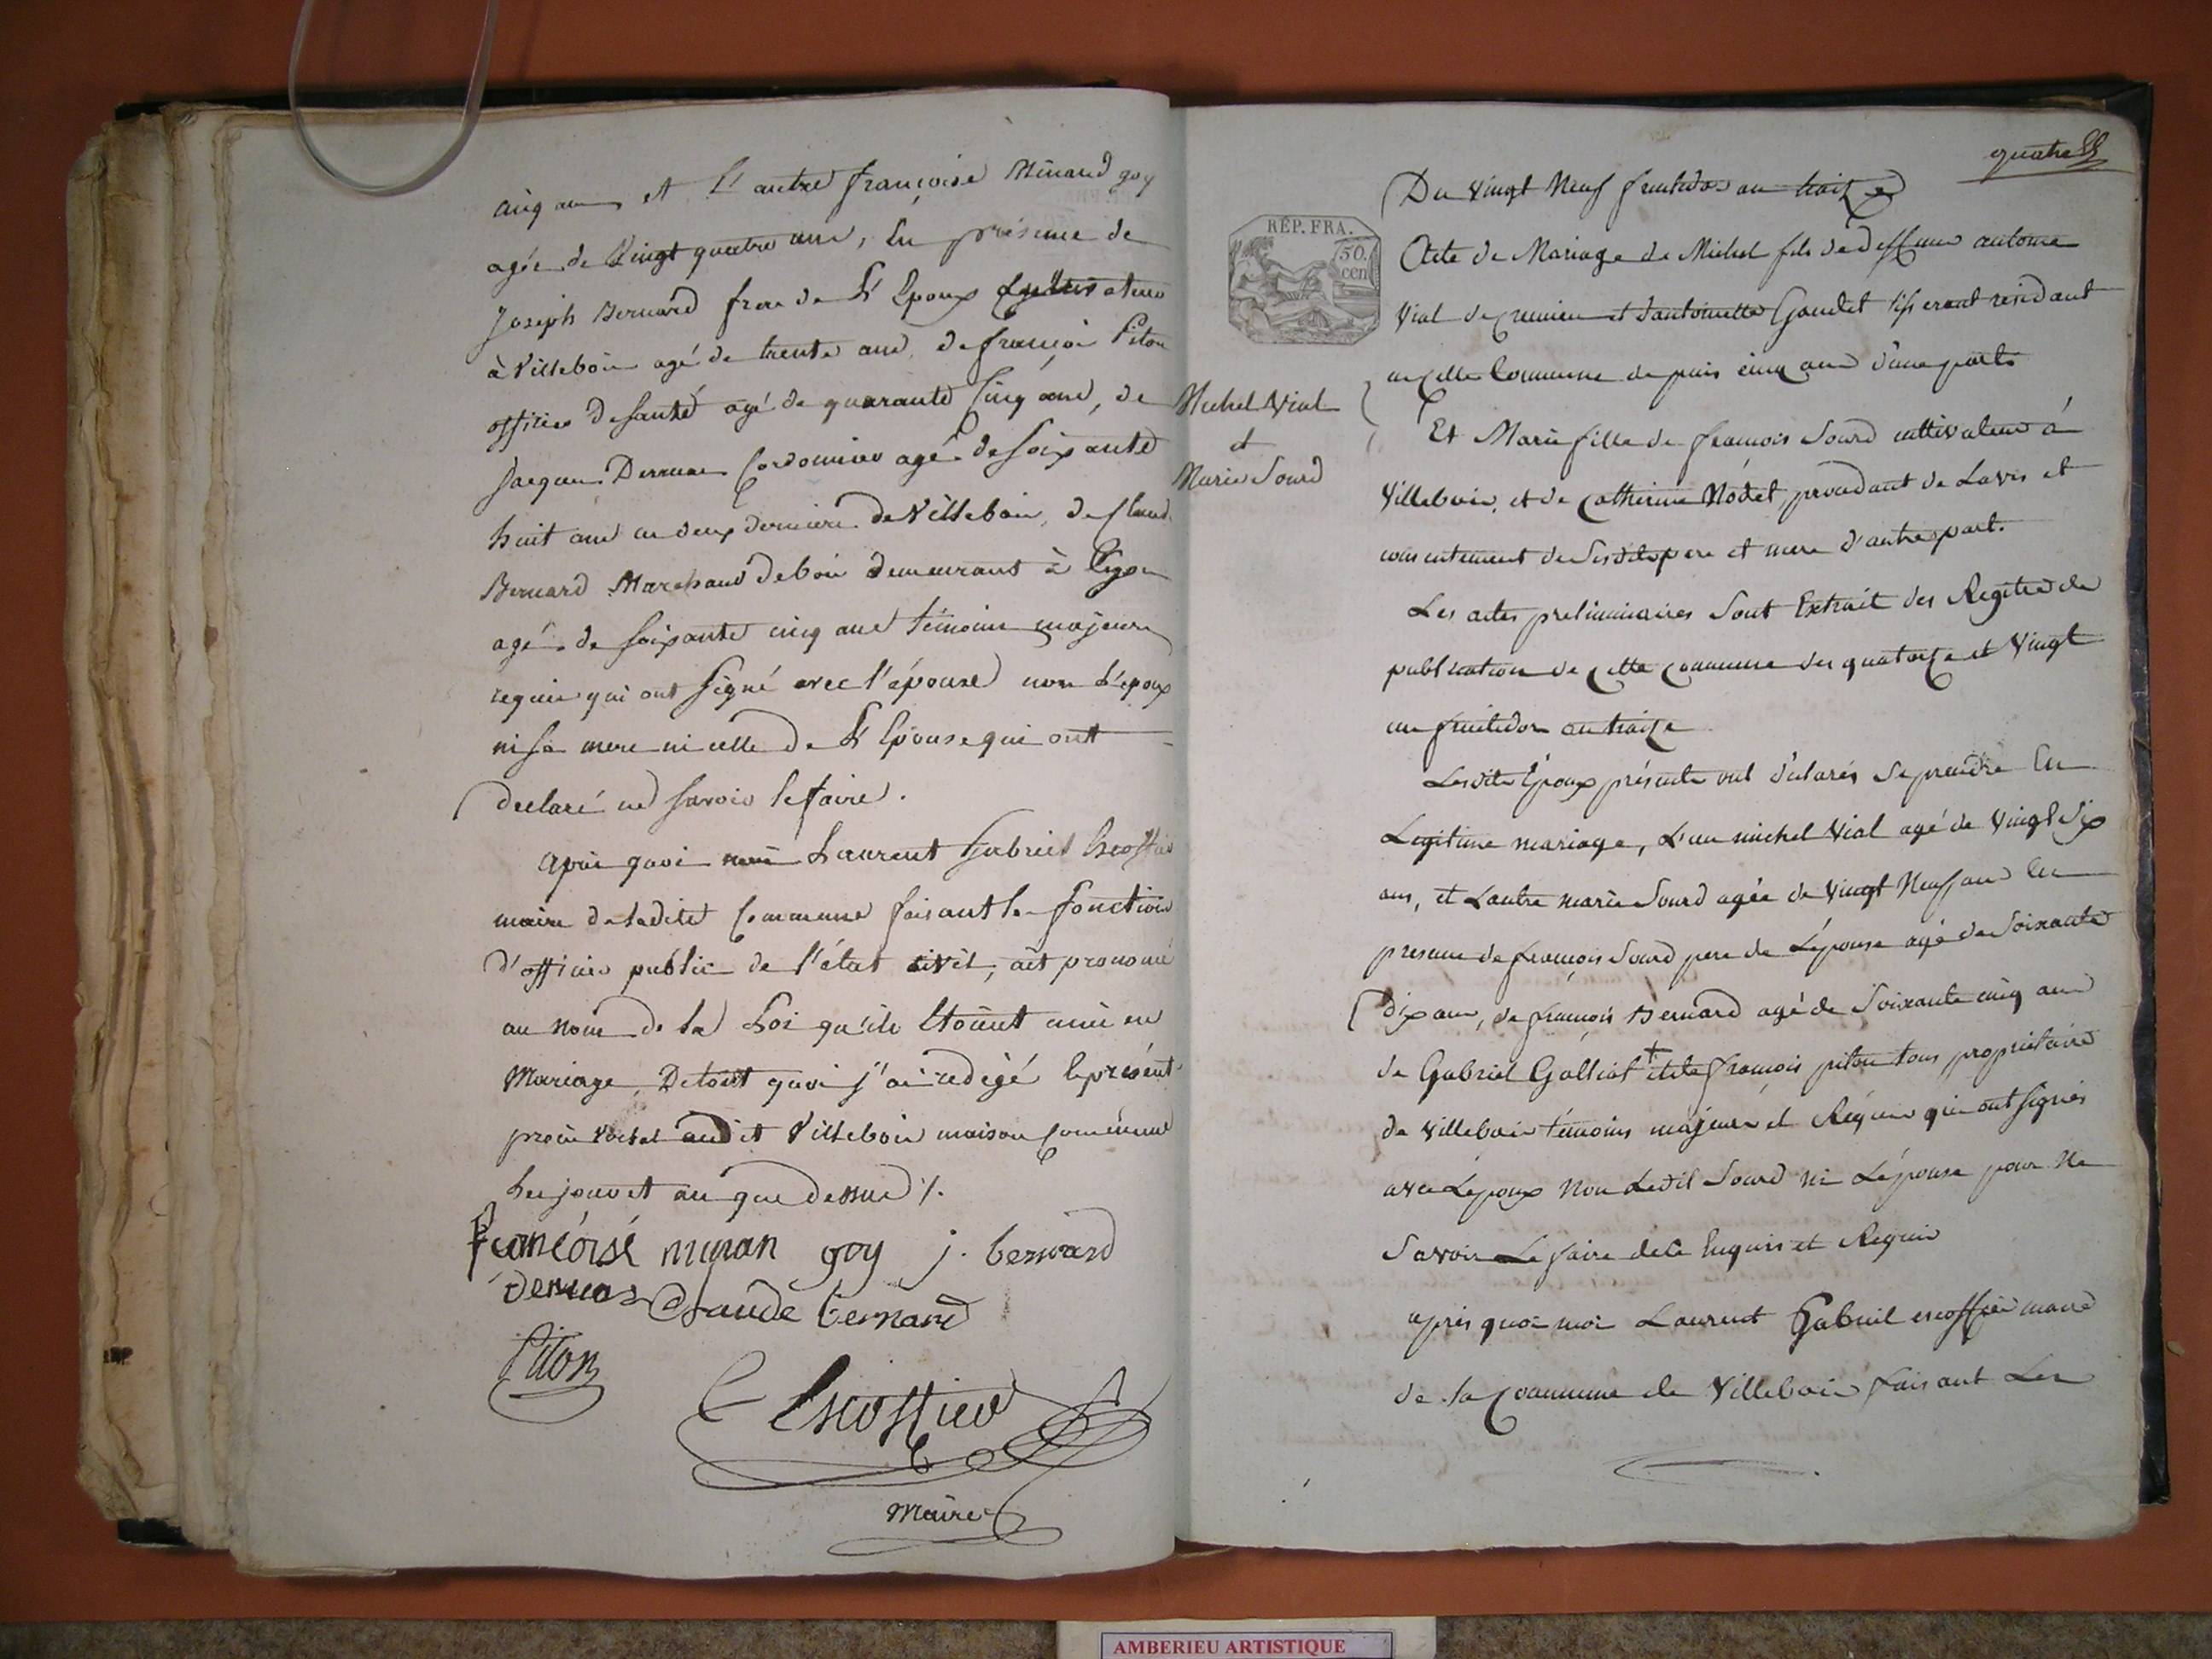 cinq ans et l'autre françoise Minand goy
agée de Vingt quatre ans, En présence de
Joseph Bernard frere de L'Epoux Cultivateur
à Villeboin agé de trente ans, de françois Piton
officier de santé agé de quarante Cinq ans, de
Jacques Derruas Cordonnier agé de soixante
huit ans ces deux derniers de Villeboin, de Claude
Bernard Marchand de bois demeurant à Lyon
agé de soixante cinq ans témoins majeurs
requis qui ont signé avec l'épouse non L'epoux
ni sa mere ni celle de L'Epouse qui ont
declaré ne savoir le faire.
après quoi moi Laurent Gabriel Escoffier
maire de ladite Commune faisant les fonctions
d'officier public de l'état civil, ait prononcé
au nom de la Loi qu'ils Etoient unis en
Mariage, De tout quoi j'ai redigé le présent
procès verbal audit Villeboin maison commune
les jour et an que dessus %.
francoise minan goy j. bernard
derruas Claude bernard
Piton
Escoffier
Maire
quatre
RÉP. FRA.
50.
cen
Michel Vial
et
Marie Sourd
Du Vingt Neuf fructidor an traize
Acte de Mariage de Michel fils de deffunt antoine
Vial de Cremieu et d'antoinette Gaudet tisserant residant
en Cette Commune depuis cinq ans d'une part
Et Marie fille de françois Sourd cultivateur à
Villeboin, et de Catherine Nodet procedant de Lavis et
consentement de Sesdits pere et mere d'autre part.
Les actes preliminaires Sont Extrait des Registre de
publication de Cette Commune des quatorze et Vingt
un fructidor an traize
Lesdits Epoux présents ont déclarés Se prendre En
Legitime mariage, L'un michel Vial agé de Vingt Six
ans, et Lautre marie Sourd agée de Vingt Neuf ans En
presence de françois Sourd pere de L'épouse agé de Soixante
dix ans, de françois Bernard agé de Soixante cinq ans
de Gabriel Galliot et de françois piton tous proprietaire
de Villeboin témoins majeurs et Requis qui ont signés
avec Lepoux Non Ledit Sourd ni L'épouse pour Ne
Savoir Le faire de ce Enquis et Requis
après quoi moi Laurent Gabriel escoffier maire
de la Commune de Villeboin faisant Les
AMBERIEU ARTISTIQUE